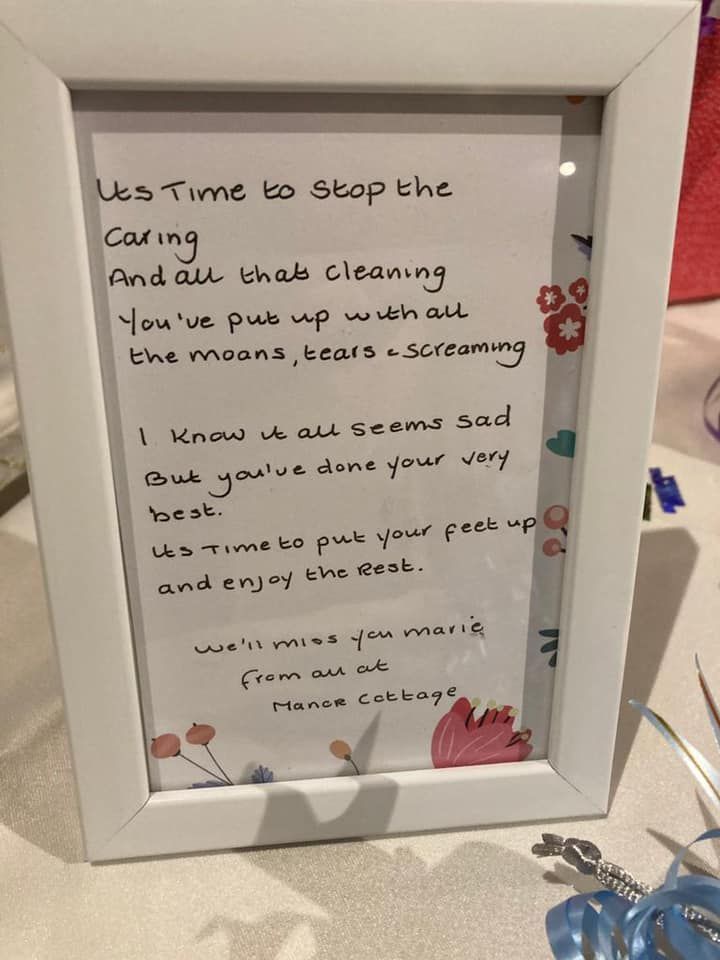 Its Time to Stop the
Caring
And all that cleaning
You've put up with all
the moans, tears & screaming
I know it all seems sad
But you've done your very
best.
Its Time to put your feet up
and enjoy the Rest.
We'll miss you marie
from all at
Manor Cottage